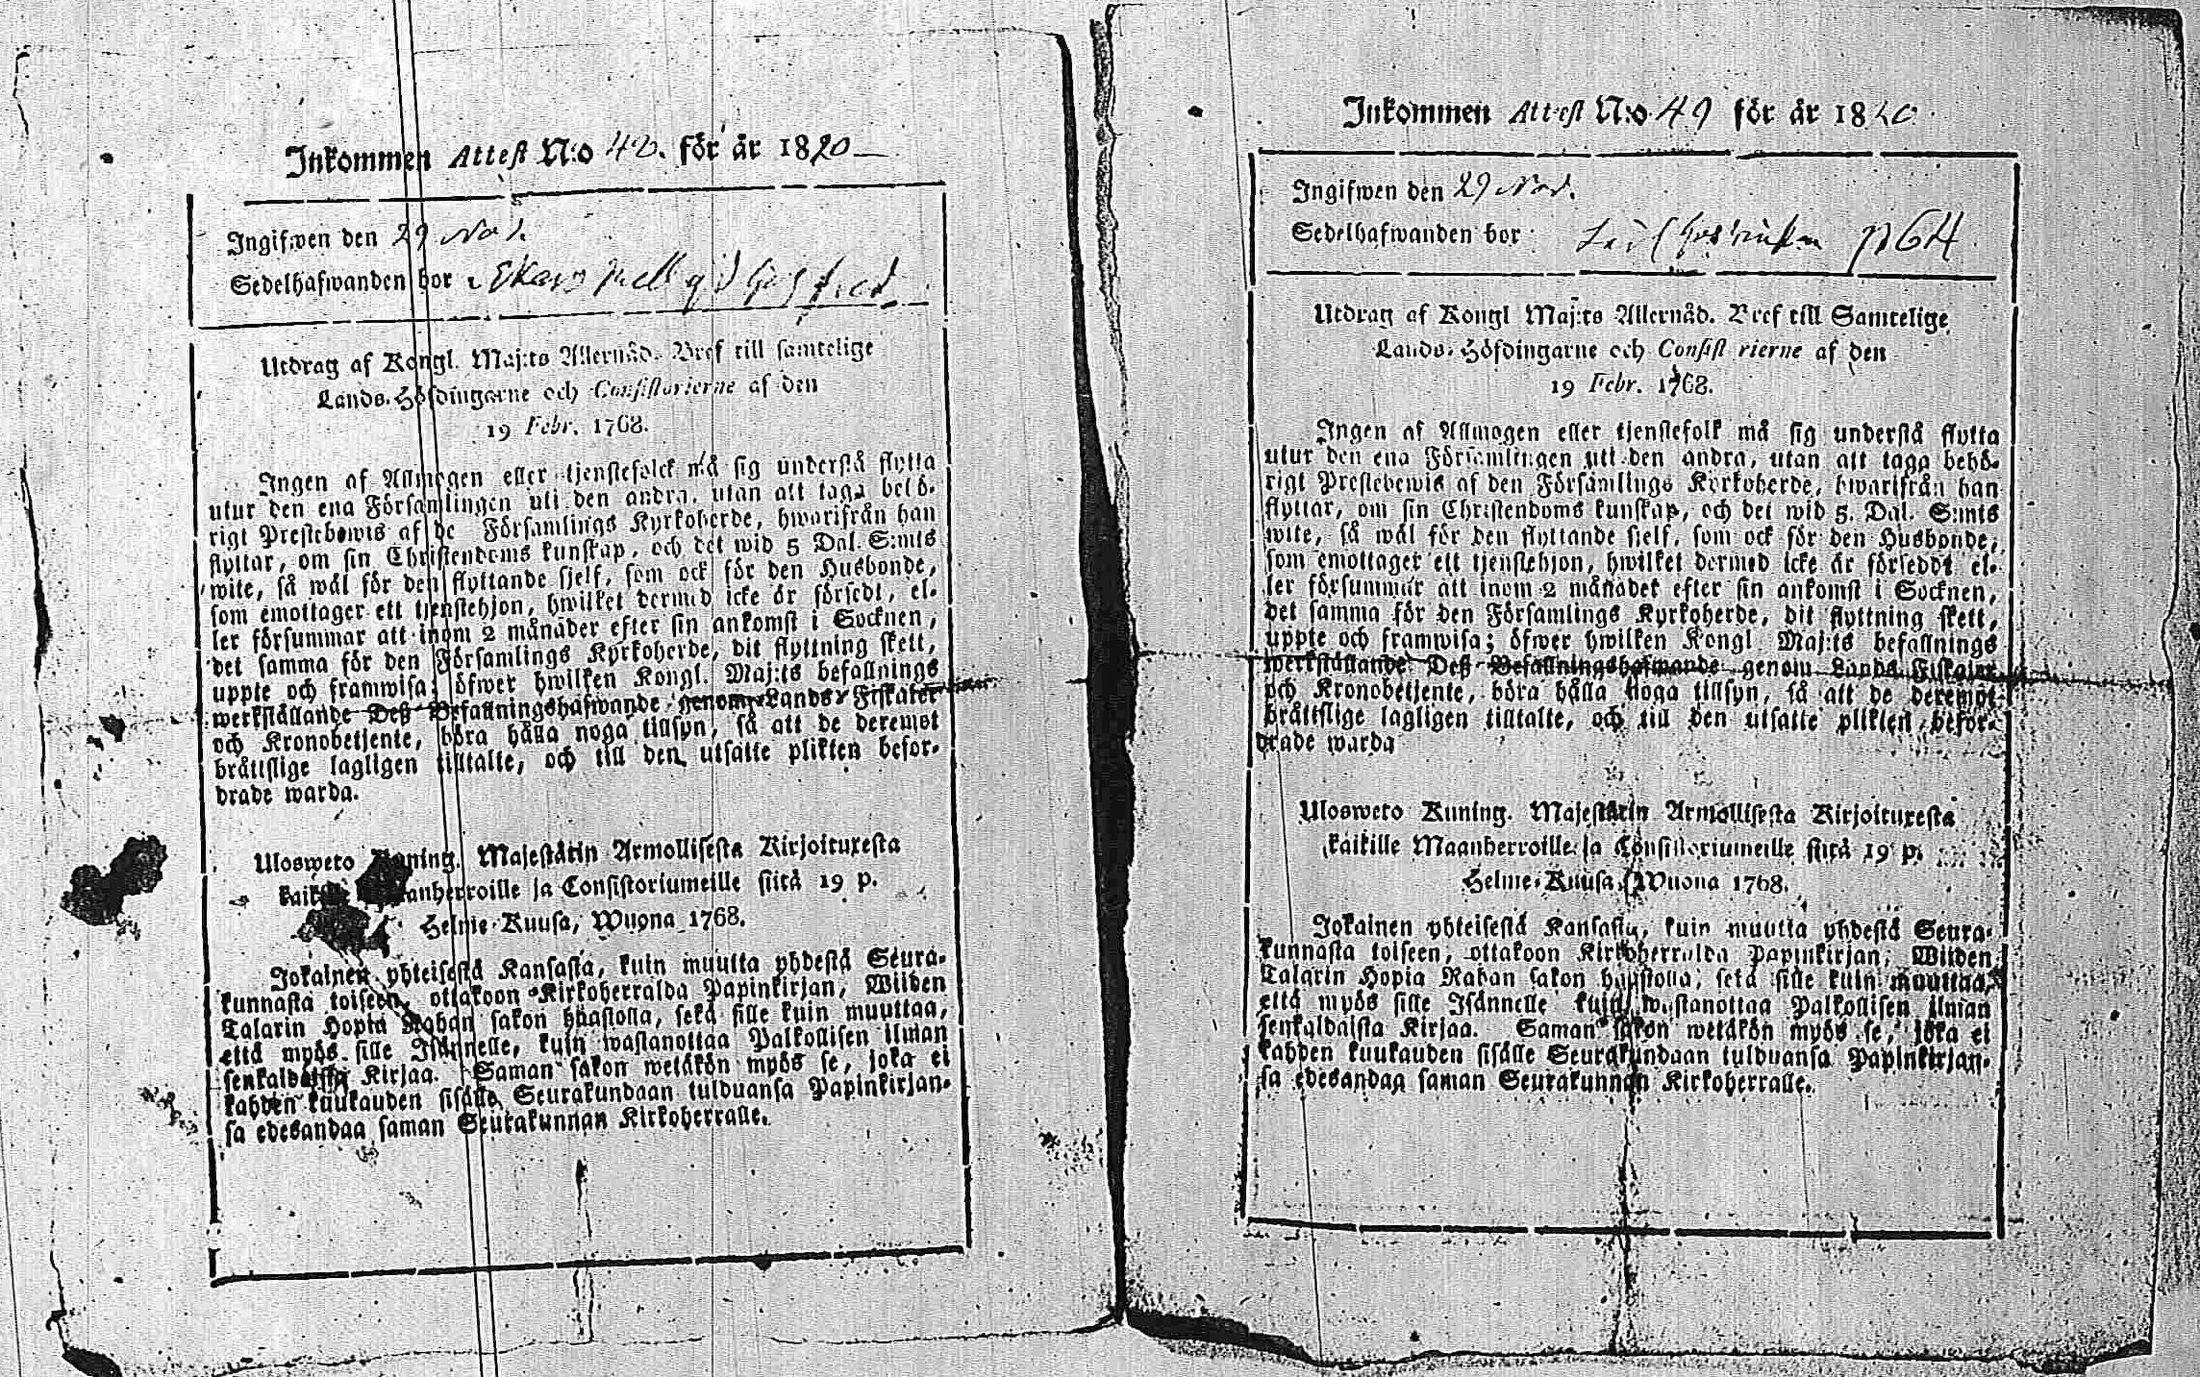 Inkommen Attest N:o 48. för år 1820
Ingifwen den 29 Nov.
Sedelhafwanden bor
Utdrag af Kongl. Maj:ts Allernåd. Bref till samtelige
Lands-Höfdingarne och Consistorierne af den
19 Febr. 1768.
Ingen af Allmogen eller tjenstefolck må sig understå flytta
utur den ena Församlingen uti den andra, utan att taga behö-
rigt Prestebewis af de Församlings Kyrkoherde, hwarifrån han
flyttar, om sin Christendoms kunskap, och det wid 5 Dal. S:mts
wite, så wäl för den flyttande sjelf, som ock för den Husbonde,
som emottager ett tjenstehjon, hwilket dermed icke är försedt, el-
ler försummar att inom 2 månader efter sin ankomst i Socknen,
det samma för den Församlings Kyrkoherde, dit flyttning skett,
uppte och framwisa; öfwer hwilken Kongl. Maj:ts befallnings
werkställande Deß Befallningshafwande genom Lands-Fiskaler
och Kronobetjente, böra hålla noga tillsyn, så att de deremot
bråttslige lagligen tilltalte, och till den utsatte plikten befor-
drade warda.
Ulosweto Kuning. Majestätin Armollisesta Kirjoituxesta
kaikille Maanherroille ja Consistoriumeille siitä 19 p.
Helme-Kuusa, Wuona 1768.
Jokainen yhteisestä Kansasta, kuin muutta yhdestä Seura-
kunnasta toiseen, ottakoon Kirkoherralda Papinkirjan, Wiiden
Talarin Hopia Rahan sakon haastolla, sekä sille kuin muuttaa,
että myös sille Isännelle, kuin wastanottaa Palkollisen ilman
senkaldaista Kirjaa. Saman sakon wetäkön myös se, joka ei
kahden kuukauden sisälle Seurakundaan tulduansa Papinkirjan-
sa edesandaa saman Seurakunnan Kirkoherralle.
Inkommen Attest N:o 49 för år 1820
Ingifwen den 29 Nov.
Sedelhafwanden bor p 64
Utdrag af Kongl Maj:ts Allernåd. Bref till Samtelige
Lands-Höfdingarne och Consist rierne af den
19 Febr. 1768.
Ingen af Allmogen eller tjenstefolk må sig understå flytta
utur den ena Församlingen uti den andra, utan att taga behö-
rigt Prestebewis af den Församlings Kyrkoherde, hwarifrån han
flyttar, om sin Christendoms kunskap, och det wid 5. Dal. S:mts
wite, så wäl för den flyttande sjelf, som ock för den Husbonde,
som emottager ett tjenstehjon, hwilket dermed icke är försedt el-
ler försummar att inom 2 månader efter sin ankomst i Socknen,
det samma för den Församlings Kyrkoherde, dit flyttning skett,
uppte och framwisa; öfwer hwilken Kongl Maj:ts befallnings
werkställande Deß Befallningshafwande genom Lands Fiskaler
och Kronobetjente, böra hålla noga tillsyn, så att de deremot
bråttslige lagligen tilltalte, och till den utsatte plikten befor-
drade warda
Ulosweto Kuning. Majestätin Armollisesta Kirjoituxesta
kaikille Maanherroille ja Consistoriumeille siitä 19 p.
Helme-Kuusa, Wuona 1768.
Jokainen yhteisestä Kansasta, kuin muutta yhdestä Seura-
kunnasta toiseen, ottakoon Kirkoherralda Papinkirjan, Wiiden
Talarin Hopia Rahan sakon haastolla, sekä sille kuin muuttaa,
että myös sille Isännelle kuin wastanottaa Palkollisen ilman
senkaldaista Kirjaa. Saman sakon wetäkön myös se, joka ei
kahden kuukauden sisälle Seurakundaan tulduansa Papinkirjan-
sa edesandaa saman Seurakunnan Kirkoherralle.